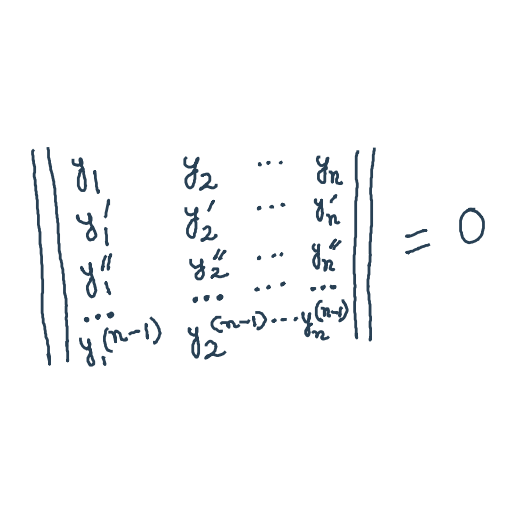 ‖ y₁ y₂ ⋯ yₙ ‖
‖ y₁′ y₂′ ⋯ yₙ′ ‖ = 0
‖ y₁″ y₂″ ⋯ yₙ″ ‖
‖ ⋯ ⋯ ⋯ ⋯ ‖
‖ y₁⁽ⁿ⁻¹⁾ y₂⁽ⁿ⁻¹⁾ ⋯ yₙ⁽ⁿ⁻¹⁾ ‖